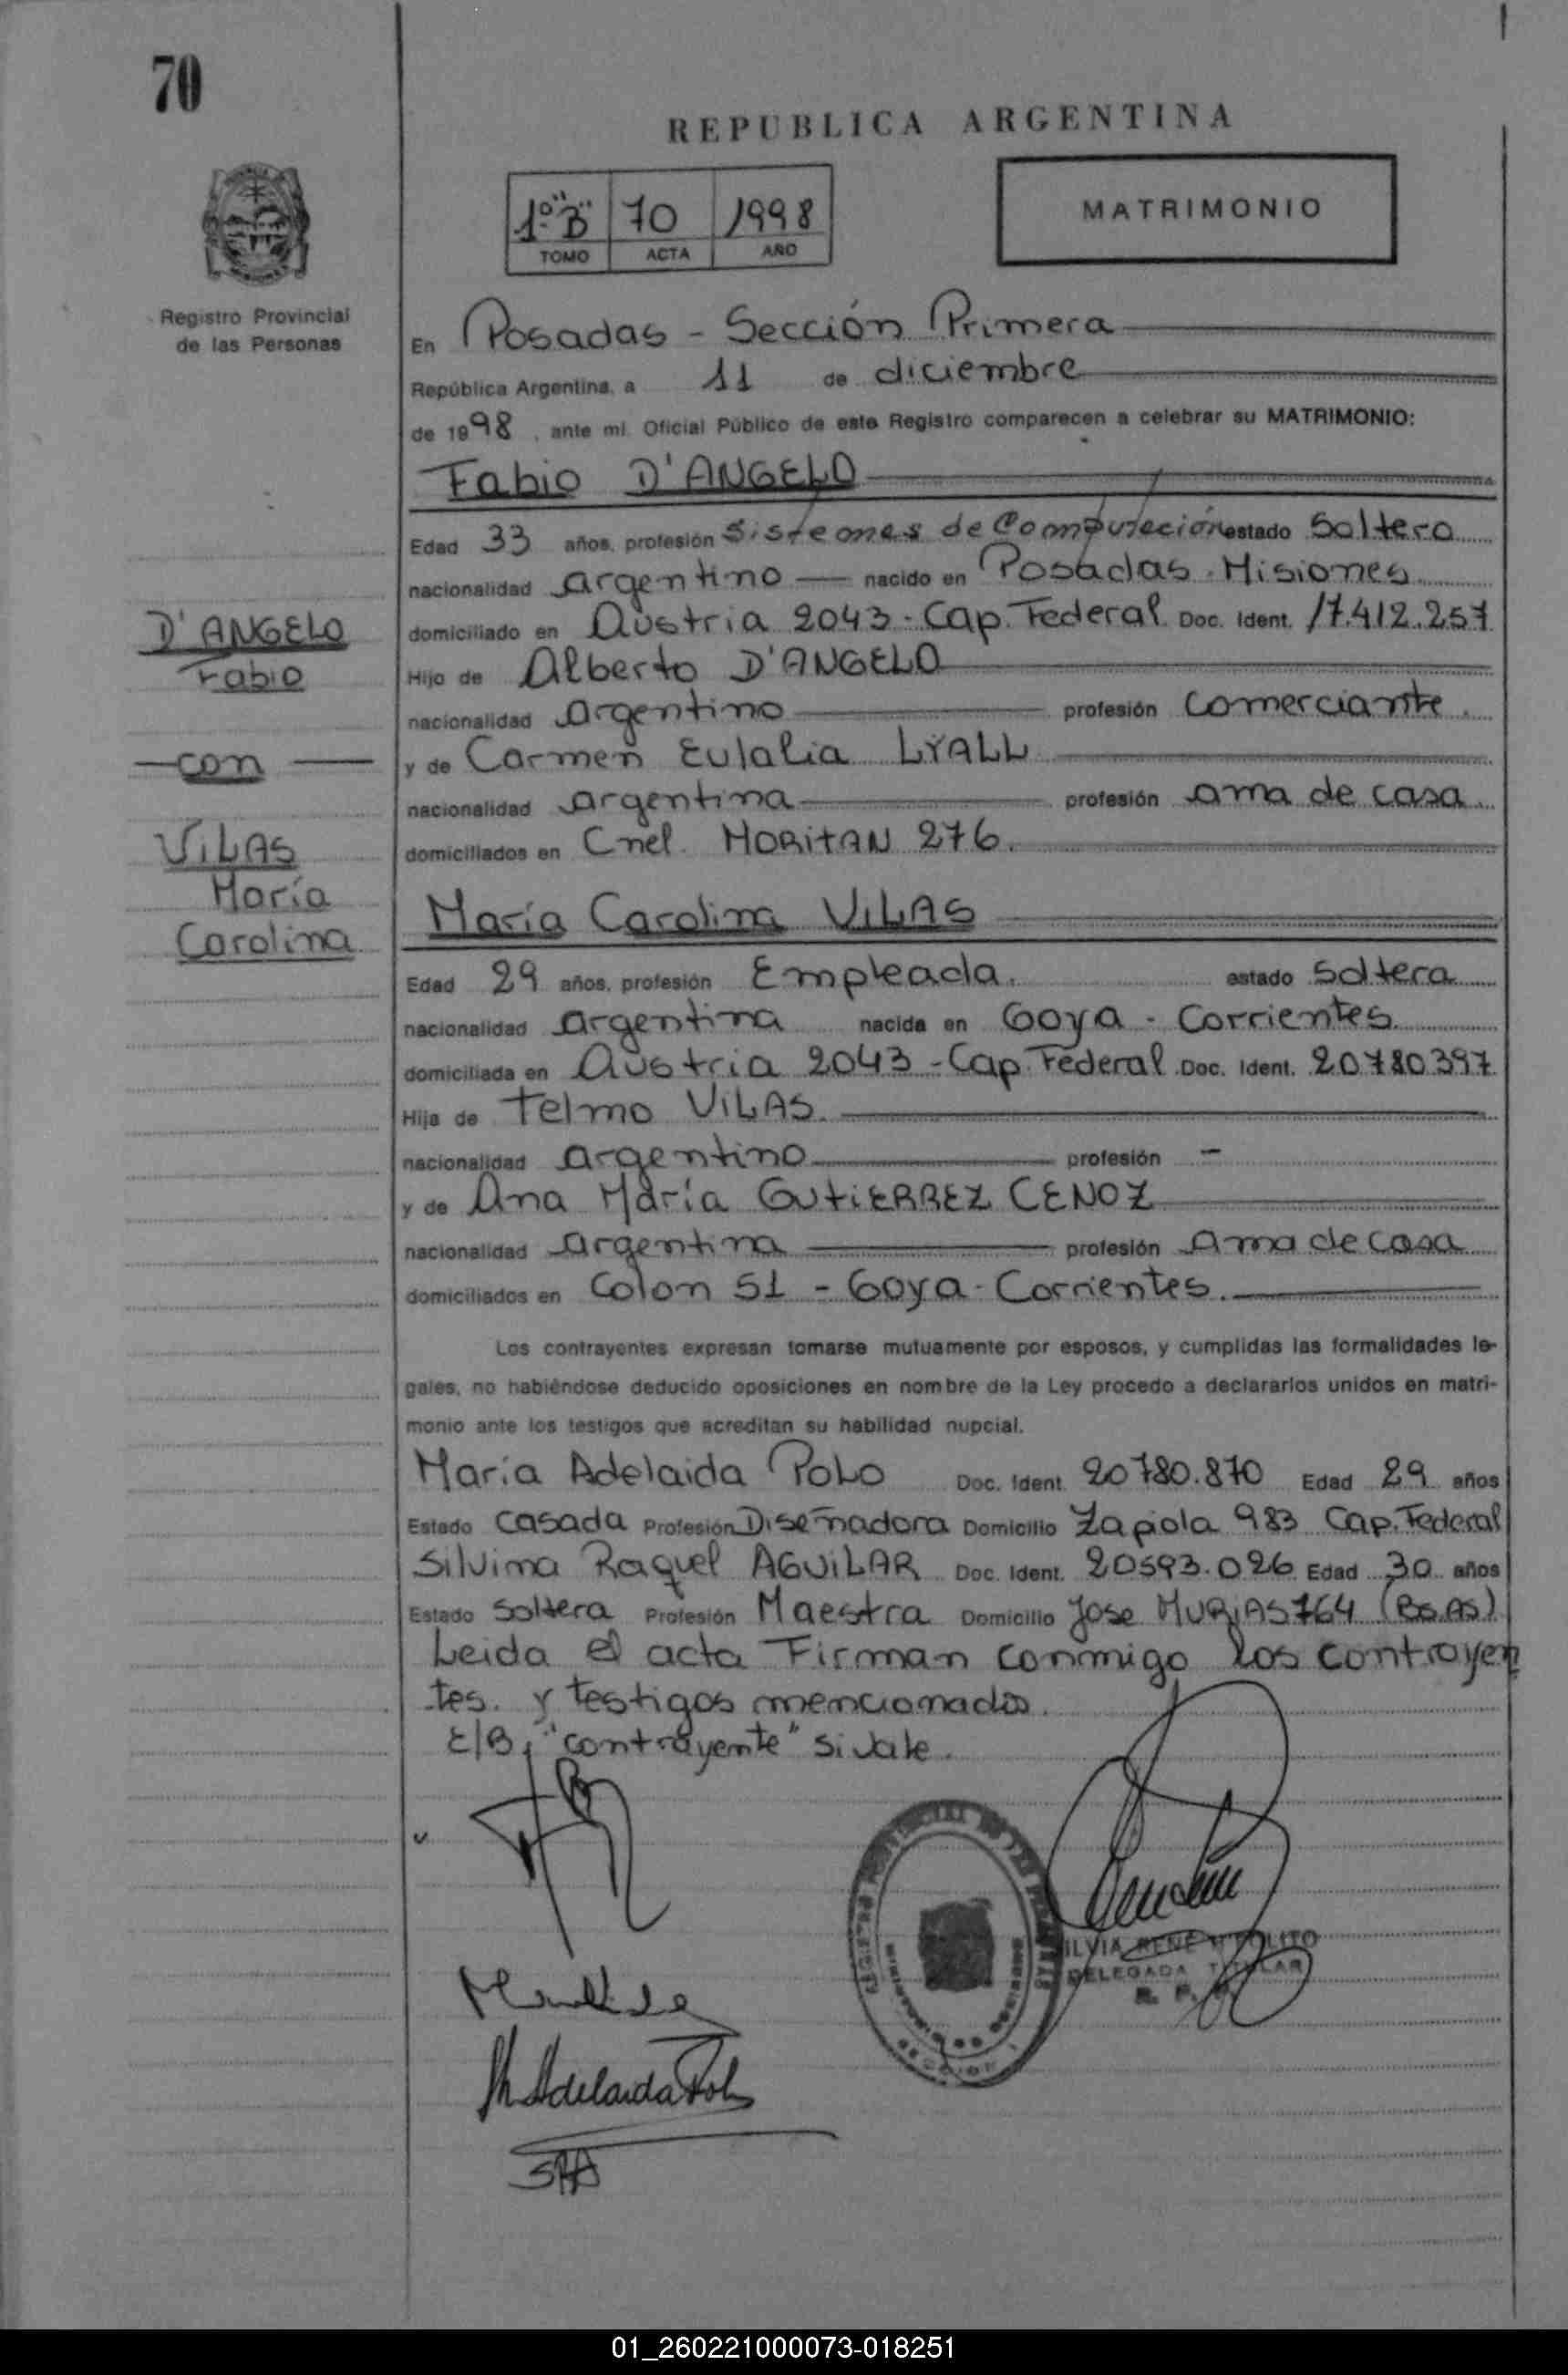 70
REPUBLICA ARGENTINA
1º "B" 70 1998
TOMO ACTA AÑO
MATRIMONIO
Registro Provincial
de las Personas
En Posadas - Sección Primera
República Argentina, a 11 de diciembre
de 1998, ante mi Oficial Público de este Registro comparecen a celebrar su MATRIMONIO:
Fabio D'ANGELO
Edad 33 años, profesión Sistemas de Computación estado Soltero
nacionalidad argentino nacido en Posadas - Misiones
D'ANGELO
Fabio
con
VILAS
María
Carolina
domiciliado en Austria 2043 - Cap. Federal Doc. Ident. 17.412.257
Hijo de Alberto D'ANGELO
nacionalidad argentino profesión Comerciante.
y de Carmen Eulalia LYALL
nacionalidad argentina profesión ama de casa
domiciliados en Cnel. 276.
María Carolina VILAS
Edad 29 años, profesión Empleada. estado Soltera
nacionalidad argentina nacida en Goya - Corrientes
domiciliada en Austria 2043 - Cap. Federal Doc. Ident. 20780397
Hija de Telmo VILAS.
nacionalidad argentino profesión -
y de Ana María GUTIERREZ CENOZ
nacionalidad argentina profesión Ama de casa
domiciliados en Colon 51 - Goya - Corrientes.
Los contrayentes expresan tomarse mutuamente por esposos, y cumplidas las formalidades le-
gales, no habiéndose deducido oposiciones en nombre de la Ley procedo a declararlos unidos en matri-
monio ante los testigos que acreditan su habilidad nupcial.
María Adelaida POLO Doc. Ident. 20780.870 Edad 29 años
Estado Casada Profesión Diseñadora Domicilio Zapiola 983 Cap. Federal
Silvina Raquel AGUILAR Doc. Ident. 20593.026 Edad 30 años
Estado Soltera Profesión Maestra Domicilio Jose MURIAS 764 (Bs.AS)
Leida el acta Firman conmigo los contrayen
tes. y testigos mencionados.
E/B, "contrayente" si vale.
M. Adelaida Polo
DELEGADA TITULAR
01_260221000073-018251